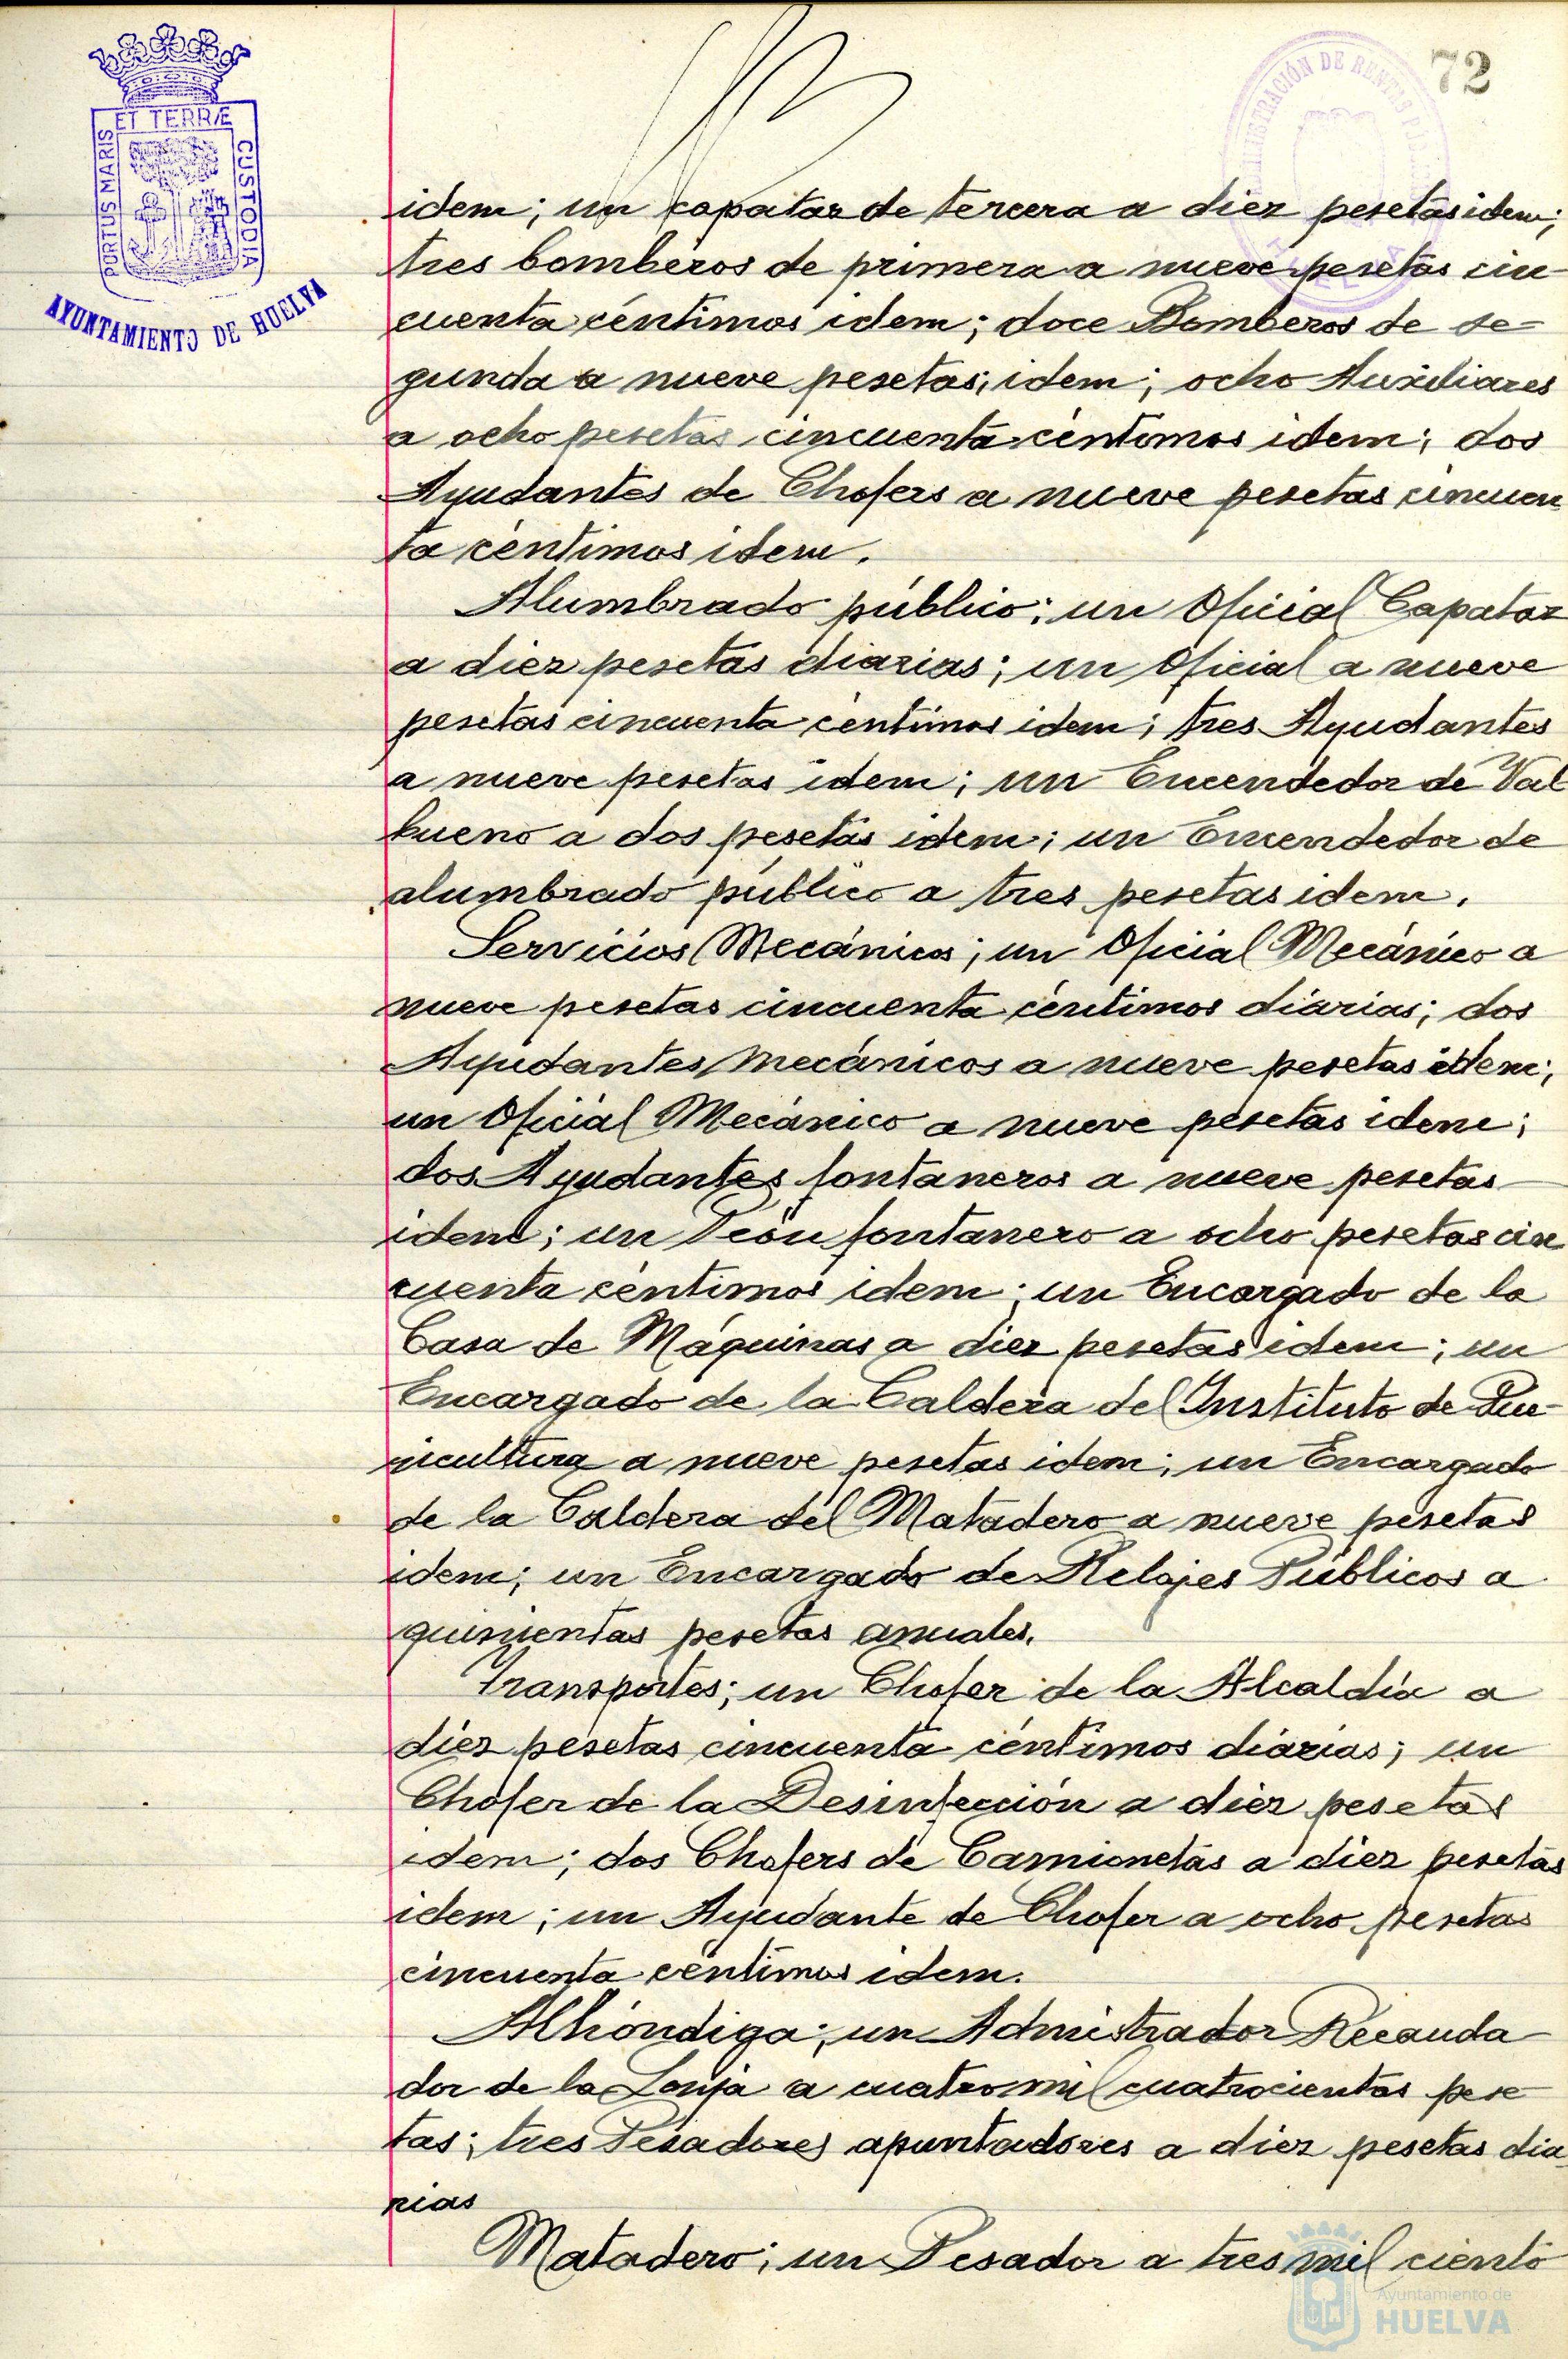 72
ET TERRÆ
PORTUS MARIS
CUSTODIA
AYUNTAMIENTO DE HUELVA
idem; un capataz de tercera a diez pesetas idem;
tres bomberos de primera a nueve pesetas cin-
cuenta céntimos idem; doce Bomberos de se-
gunda a nueve pesetas, idem; ocho Auxiliares
a ocho pesetas cincuenta céntimos idem; dos
Ayudantes de Chofers a nueve pesetas cincuen
ta céntimos idem.
Alumbrado público; un Oficial Capataz
a diez pesetas diarias; un Oficial a nueve
pesetas cincuenta céntimos idem; tres Ayudantes
a nueve pesetas idem; un Encendedor de Val
bueno a dos pesetas idem; un Encendedor de
alumbrado público a tres pesetas idem.
Servicios Mecánicos; un Oficial Mecánico a
nueve pesetas cincuenta céntimos diarias; dos
Ayudantes Mecánicos a nueve pesetas idem;
un Oficial Mecánico a nueve pesetas idem;
dos Ayudantes fontaneros a nueve pesetas
idem; un Peón fontanero a ocho pesetas cin
cuenta céntimos idem; un Encargado de la
Casa de Máquinas a diez pesetas idem; un
Encargado de la Caldera del Instituto de Pue-
ricultura a nueve pesetas idem; un Encargado
de la Caldera del Matadero a nueve pesetas
idem; un Encargado de Relojes Públicos a
quinientas pesetas anuales.
Transportes; un Chofer de la Alcaldía a
diez pesetas cincuenta céntimos diarias; un
Chofer de la Desinfección a diez pesetas
idem; dos Chofers de Camionetas a diez pesetas
idem; un Ayudante de Chofer a ocho pesetas
cincuenta céntimos idem.
Alhóndiga; un Admistrador Recauda-
dor de la Lonja a cuatro mil cuatrocientas pese
tas; tres Pesadores apuntadores a diez pesetas dia
rias
Matadero; un Pesador a tres mil ciento
Ayuntamiento de
HUELVA